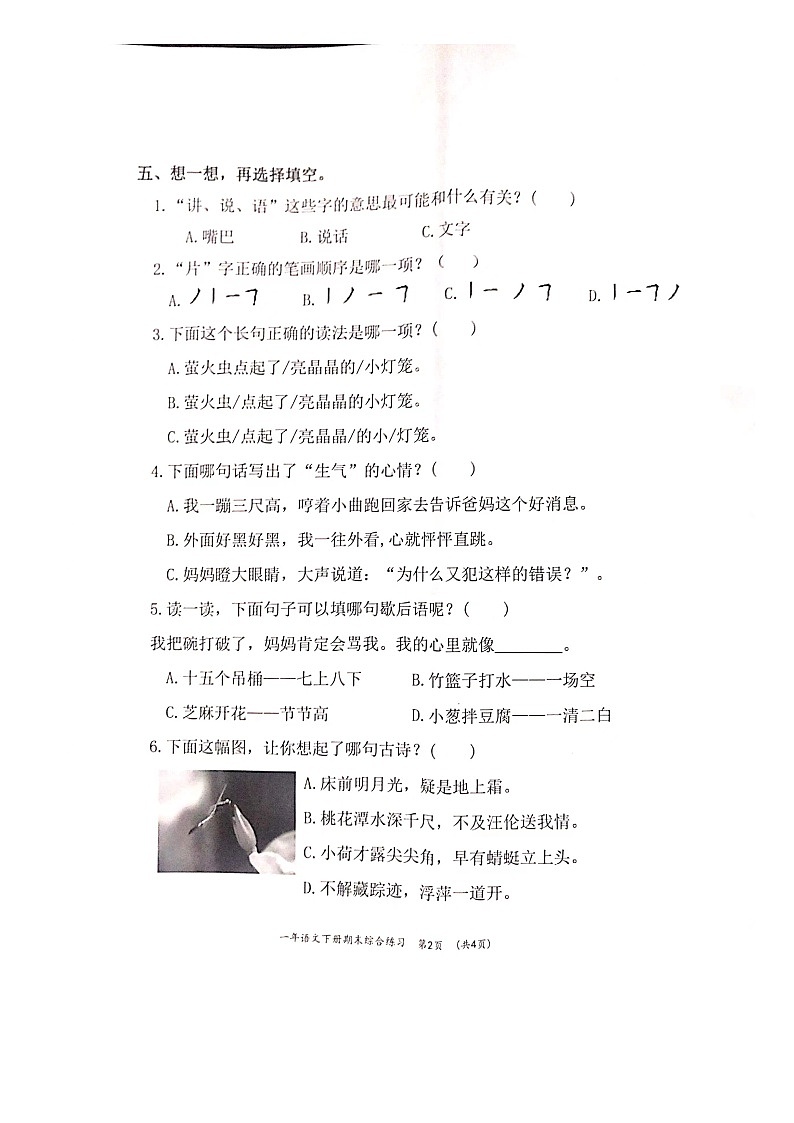 五、想一想，再选择填空。
1.“讲、说、语”这些字的意思最可能和什么有关？(  )
A.嘴巴 B.说话 C.文字
2.“片”字正确的笔画顺序是哪一项？(  )
A.丿丨一㇕ B.丨丿一㇕ C.丨一丿㇕ D.丨一㇕丿
3.下面这个长句正确的读法是哪一项？(  )
A.萤火虫点起了/亮晶晶的/小灯笼。
B.萤火虫/点起了/亮晶晶的/小灯笼。
C.萤火虫/点起了/亮晶晶/的小/灯笼。
4.下面哪句话写出了“生气”的心情？(  )
A.我一蹦三尺高，哼着小曲跑回家去告诉爸妈这个好消息。
B.外面好黑好黑，我一往外看,心就怦怦直跳。
C.妈妈瞪大眼睛，大声说道：“为什么又犯这样的错误？”。
5.读一读，下面句子可以填哪句歇后语呢？(  )
我把碗打破了，妈妈肯定会骂我。我的心里就像________。
A.十五个吊桶——七上八下 B.竹篮子打水——一场空
C.芝麻开花——节节高 D.小葱拌豆腐——一清二白
6.下面这幅图，让你想起了哪句古诗？(  )
A.床前明月光，疑是地上霜。
B.桃花潭水深千尺，不及汪伦送我情。
C.小荷才露尖尖角，早有蜻蜓立上头。
D.不解藏踪迹，浮萍一道开。
一年语文下册期末综合练习 第2页 (共4页)